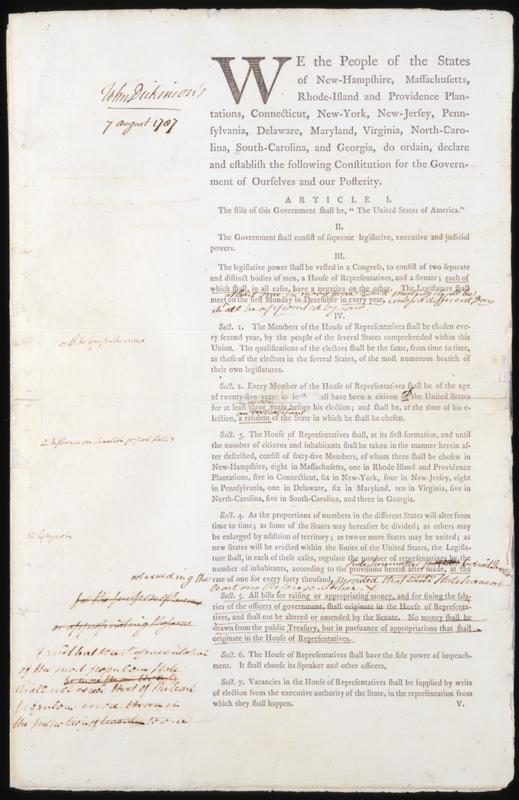 John Dickinson's
7 August 1787
WE the People of the States
of New-Hampſhire, Maſſachuſetts,
Rhode-Iſland and Providence Plan-
tations, Connecticut, New-York, New-Jerſey, Penn-
ſylvania, Delaware, Maryland, Virginia, North-Caro-
lina, South-Carolina, and Georgia, do ordain, declare
and eſtabliſh the following Conſtitution for the Govern-
ment of Ourſelves and our Poſterity.
ARTICLE I.
The ſtile of this Government ſhall be, "The United States of America."
II.
The Government ſhall conſiſt of ſupreme legiſlative, executive and judicial
powers.
III.
The legiſlative power ſhall be veſted in a Congreſs, to conſiſt of two ſeparate
and diſtinct bodies of men, a Houſe of Repreſentatives, and a Senate; each of
which ſhall, in all caſes, have a negative on the other. The Legiſlature ſhall
meet on the firſt Monday in December in every year, unless a different Day
shall be appointed by Law.
IV.
Sect. 1. The Members of the Houſe of Repreſentatives ſhall be choſen eve-
ry ſecond year, by the people of the ſeveral States comprehended within this
Union. The qualifications of the electors ſhall be the ſame, from time to time,
as thoſe of the electors in the ſeveral States, of the moſt numerous branch of
their own legiſlatures.
Sect. 2. Every Member of the Houſe of Repreſentatives ſhall be of the age
of twenty-five years at leaſt ſhall have been a citizen of the United States
for at leaſt three years before his election; and ſhall be, at the time of his e-
lection, a reſident of the State in which he ſhall be choſen.
Sect. 3. The Houſe of Repreſentatives ſhall, at its firſt formation, and until
the number of citizens and inhabitants ſhall be taken in the manner herein af-
ter deſcribed, conſiſt of ſixty-five Members, of whom three ſhall be choſen in
New-Hampſhire, eight in Maſſachuſetts, one in Rhode-Iſland and Providence
Plantations, five in Connecticut, ſix in New-York, four in New-Jerſey, eight
in Pennſylvania, one in Delaware, ſix in Maryland, ten in Virginia, five in
North-Carolina, five in South-Carolina, and three in Georgia.
Sect. 4. As the proportions of numbers in the different States will alter from
time to time; as ſome of the States may hereafter be divided; as others may
be enlarged by addition of territory; as two or more States may be united; as
new States will be erected within the limits of the United States, the Legiſla-
ture ſhall, in each of theſe caſes, regulate the number of repreſentatives by the
number of inhabitants, according to the proviſions herein after made, at the
rate of one for every forty thouſand, provided that every State shall have at
least one Representative
Sect. 5. All bills for raiſing or appropriating money, and for fixing the ſala-
ries of the officers of government, ſhall originate in the Houſe of Repreſenta-
tives, and ſhall not be altered or amended by the Senate. No money ſhall be
drawn from the public Treaſury, but in purſuance of appropriations that ſhall
originate in the Houſe of Repreſentatives.
Sect. 6. The Houſe of Repreſentatives ſhall have the ſole power of impeach-
ment. It ſhall chooſe its Speaker and other officers.
Sect. 7. Vacancies in the Houſe of Repreſentatives ſhall be ſupplied by writs
of election from the executive authority of the State, in the repreſentation from
which they ſhall happen.
V.